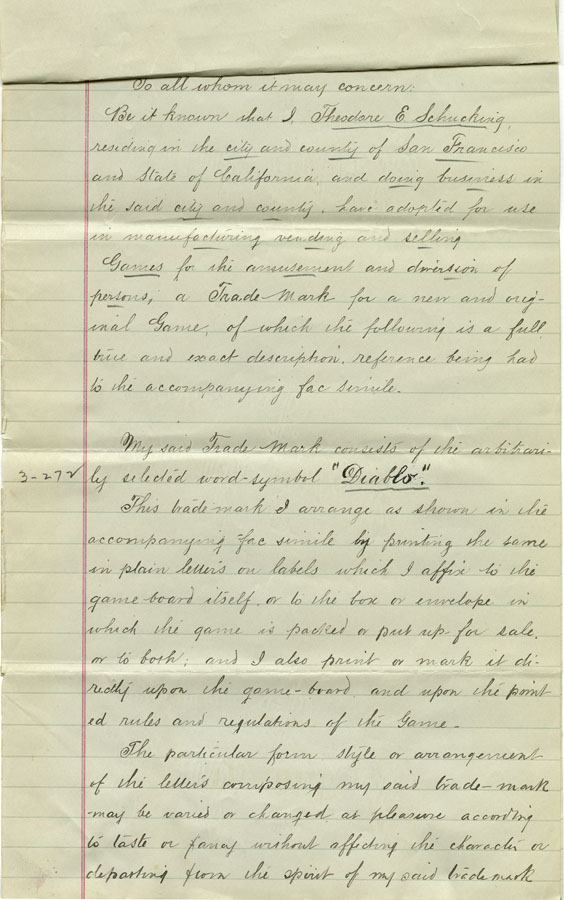 To all whom it may concern:
Be it known that I Theodore E Schucking,
residing in the city and county of San Francisco
and State of California, and doing business in
the said city and county, have adopted for use
in manufacturing vending and selling
Games for the amusement and diversion of
persons, a Trade Mark for a new and orig-
inal Game, of which the following is a full
true and exact description, reference being had
to the accompanying fac simile.
My said Trade Mark consists of the arbitrari-
3-272 ly selected word-symbol "Diablo."
This trade mark I arrange as shown in the
accompanying fac simile by printing the same
in plain letters on labels which I affix to the
game board itself, or to the box or envelope in
which the game is packed or put up for sale,
or to both; and I also print or mark it di-
rectly upon the game-board, and upon the print-
ed rules and regulations of the Game.
The particular form style or arrangement
of the letters composing my said trade-mark
may be varied or changed at pleasure according
to taste or fancy without affecting the character or
departing from the spirit of my said trade mark